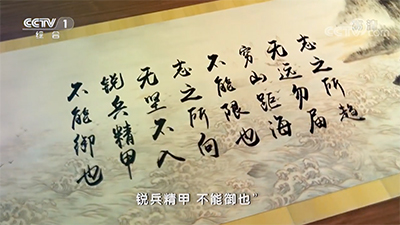 CCTV 1
综合
志之所趋
无远勿届
穷山距海
不能限也
志之所向
无坚不入
锐兵精甲
不能御也
锐兵精甲 不能御也”